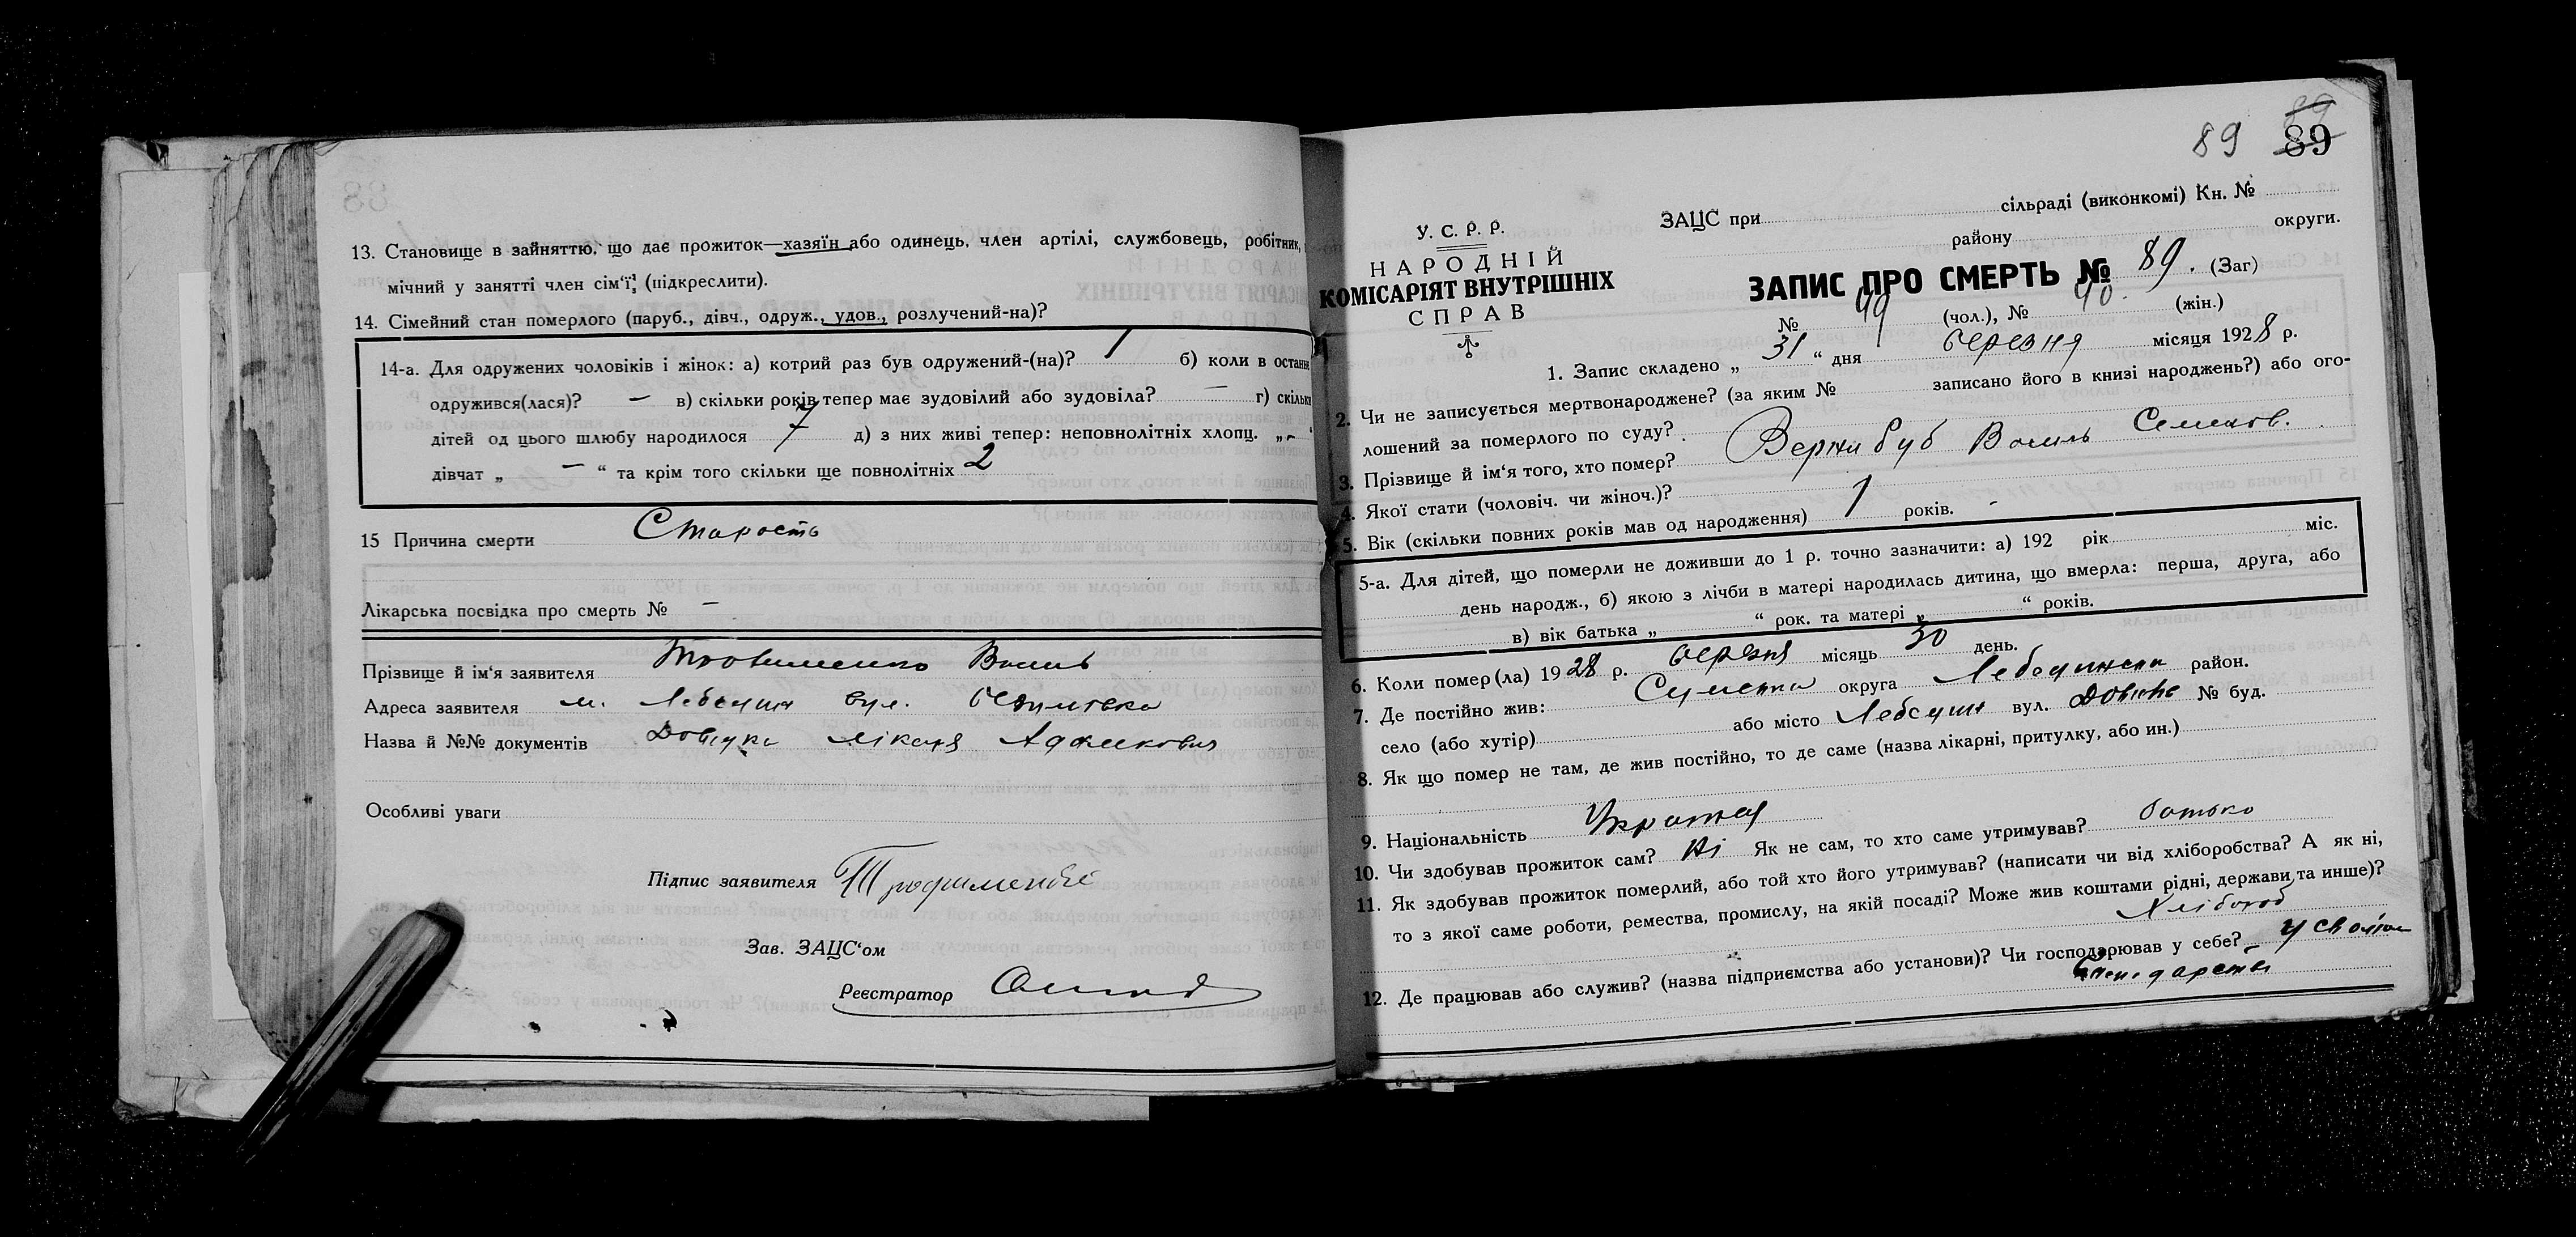 13. Становище в зайняттю, що дає прожиток—хазяїн або одинець, член артілі, службовець, робітник,
мічний у занятті член сім'ї; (підкреслити).
14. Сімейний стан померлого (паруб., дівч., одруж., удов., розлучений-на)?
14-а. Для одружених чоловіків і жінок: а) котрий раз був одружений-(на)? 1 б) коли в останн
одружився(лася)? — в) скільки років тепер має зудовілий або зудовіла? — г) скільки
дітей од цього шлюбу народилося 7 д) з них живі тепер: неповнолітніх хлопц. „ –
дівчат „ — “ та крім того скільки ще повнолітніх 2
15 Причина смерти Старость
Лікарська посвідка про смерть № –
Прізвище й ім'я заявителя Трофименко Василь
Адреса заявителя м. Лебедин вул.
Назва й №№ документів Довідка лікаря
Особливі уваги
Підпис заявителя Трофименко
Зав. ЗАЦС'ом
Реєстратор
89 89
89
У. С. Р. Р.
НАРОДНІЙ
КОМІСАРІЯТ ВНУТРІШНІХ
СПРАВ
ЗАЦС при сільраді (виконкомі) Кн. №
району округи.
ЗАПИС ПРО СМЕРТЬ № 89. (Заг)
№ 49 (чол.), № 40. (жін.)
1. Запис складено „ 31 “ дня березня місяця 1928 р.
2. Чи не записується мертвонароджене? (за яким № записано його в книзі народжень?) або ого-
лошений за померлого по суду?
3. Прізвище й ім'я того, хто помер? Вернибуб Василь Семенов.
4. Якої стати (чоловіч. чи жіноч.)?
5. Вік (скільки повних років мав од народження) 1 років. –
5-а. Для дітей, що померли не доживши до 1 р. точно зазначити: а) 192 рік міс.
день народж., б) якою з лічби в матері народилась дитина, що вмерла: перша, друга, або
в) вік батька „ “ рок. та матері „ “ років.
6. Коли помер(ла) 1928 р. березня місяць 30 день.
7. Де постійно жив: Сумська округа Лебединськи район.
село (або хутір) або місто Лебедин вул. № буд.
8. Як що помер не там, де жив постійно, то де саме (назва лікарні, притулку, або ин.)
9. Національність
10. Чи здобував прожиток сам? Ні Як не сам, то хто саме утримував? батько
11. Як здобував прожиток померлий, або той хто його утримував? (написати чи від хліборобства? А як ні,
то з якої саме роботи, ремества, промислу, на якій посаді? Може жив коштами рідні, держави та инше)?
Хлібороб
12. Де працював або служив? (назва підприємства або установи)? Чи господарював у себе? У своїм
господарстві